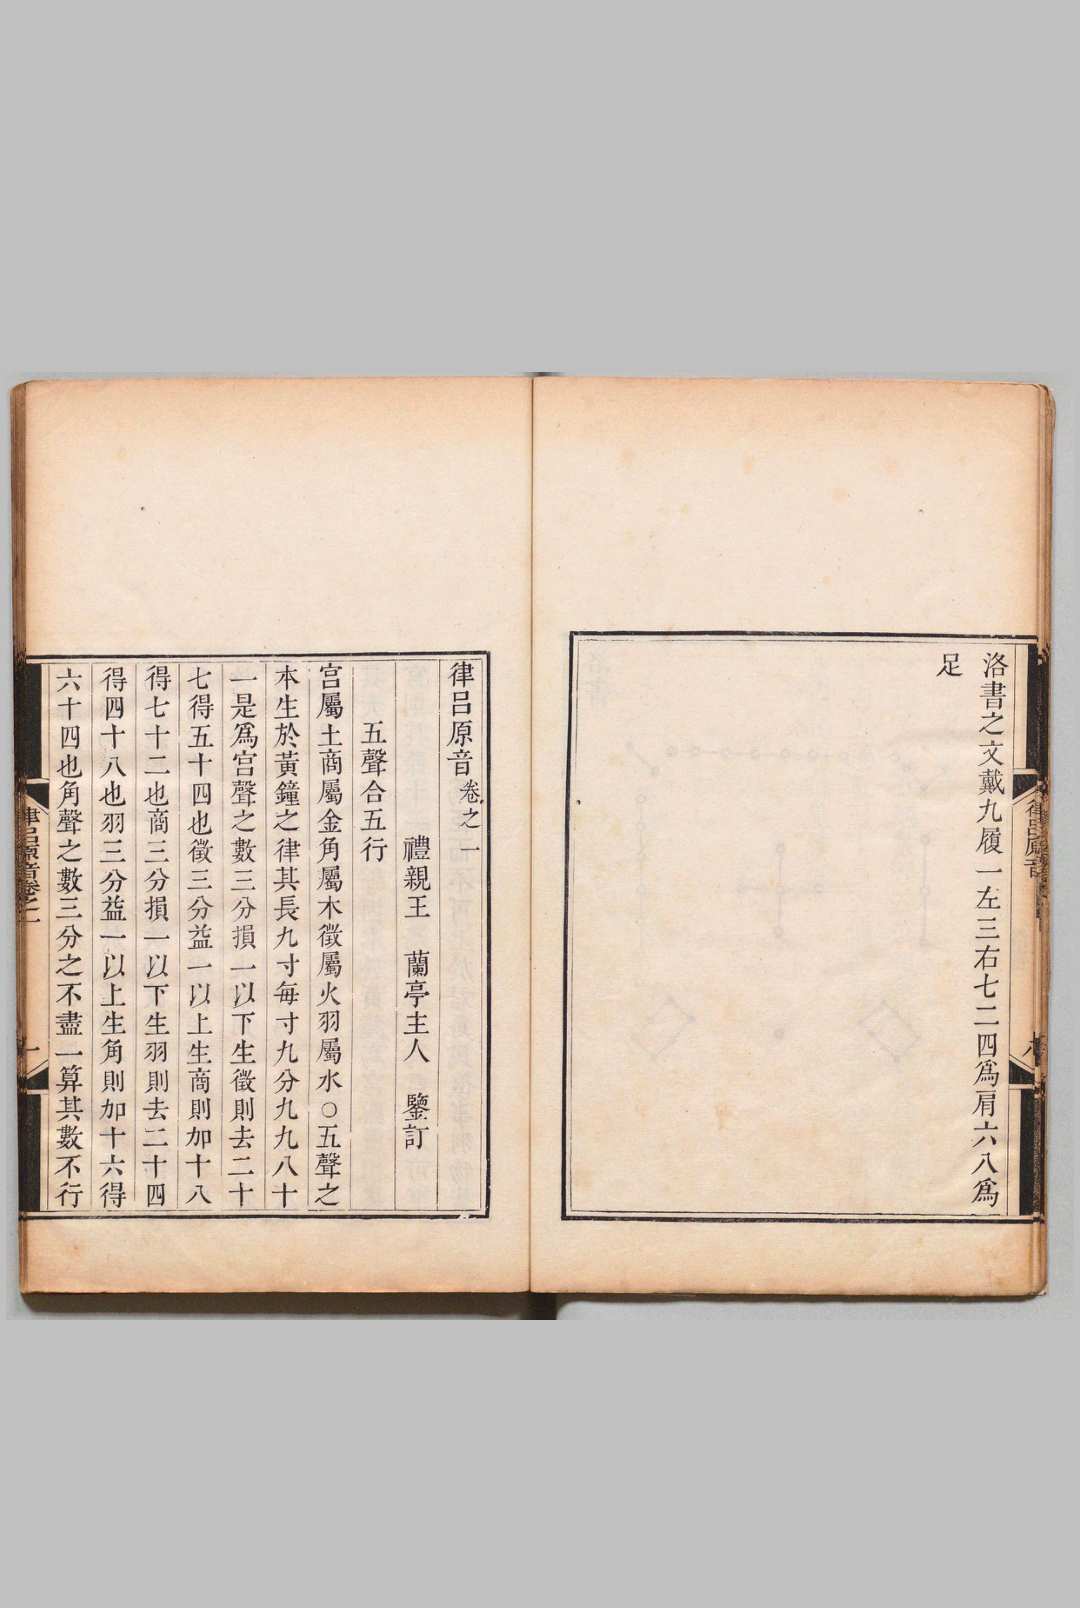 洛書之文戴九履一左三右七二四爲肩六八爲
足
律呂原音
律呂原音卷之一
禮親王 蘭亭主人 鑒訂
五聲合五行
宮屬土商屬金角屬木徵屬火羽屬水○五聲之
本生於黃鐘之律其長九寸每寸九分九九八十
一是爲宮聲之數三分損一以下生徵則去二十
七得五十四也徵三分益一以上生商則加十八
得七十二也商三分損一以下生羽則去二十四
得四十八也羽三分益一以上生角則加十六得
六十四也角聲之數三分之不盡一算其數不行
律呂原音卷之一
一